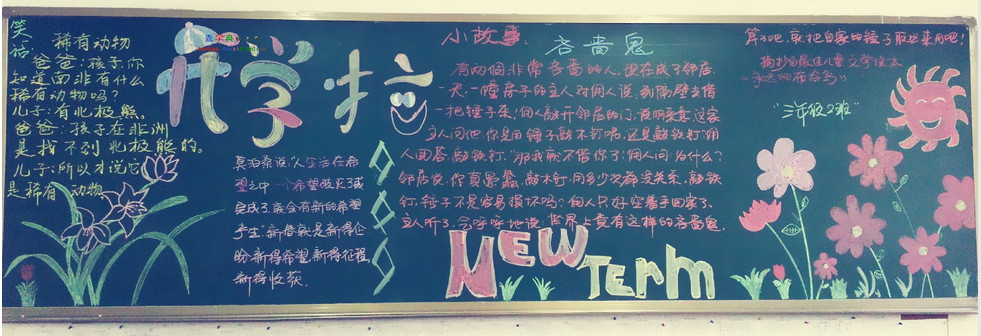 笑话
稀有动物
爸爸：孩子，你
知道南非有什么
稀有动物吗？
儿子：有北极熊。
爸爸：孩子在非洲
是找不到北极熊的。
儿子：所以才说它
是稀有 动物
开学啦
莫泊桑说：人生活在希
望之中一个希望破灭了或
完成了，就会有新的希望
产生，新学期是新得企
盼，新得希望，新得征程，
新得收获.
小故事：
吝啬鬼
有两个非常吝啬的人，他们成了邻居.
一天，一幢房子的主人对佣人说，到隔壁去借
一把锤子来，佣人敲开邻居的门，
主人问他，你是用锤子敲木钉呢，还是敲铁钉，佣
人回答，敲铁钉，那我就不借你了，佣人问：为什么？
邻居说，你真愚蠢，敲木钉，用多少次都没关系，敲铁
钉，锤子不是容易损坏吗？佣人只好空着手回家了.
主人听了，气呼呼地说，世界上竟有这样的吝啬鬼.
NEW
Term
算了吧，就把自家的锤子取出来用吧！
摘抄自最佳儿童文学读本
"三年级2班"